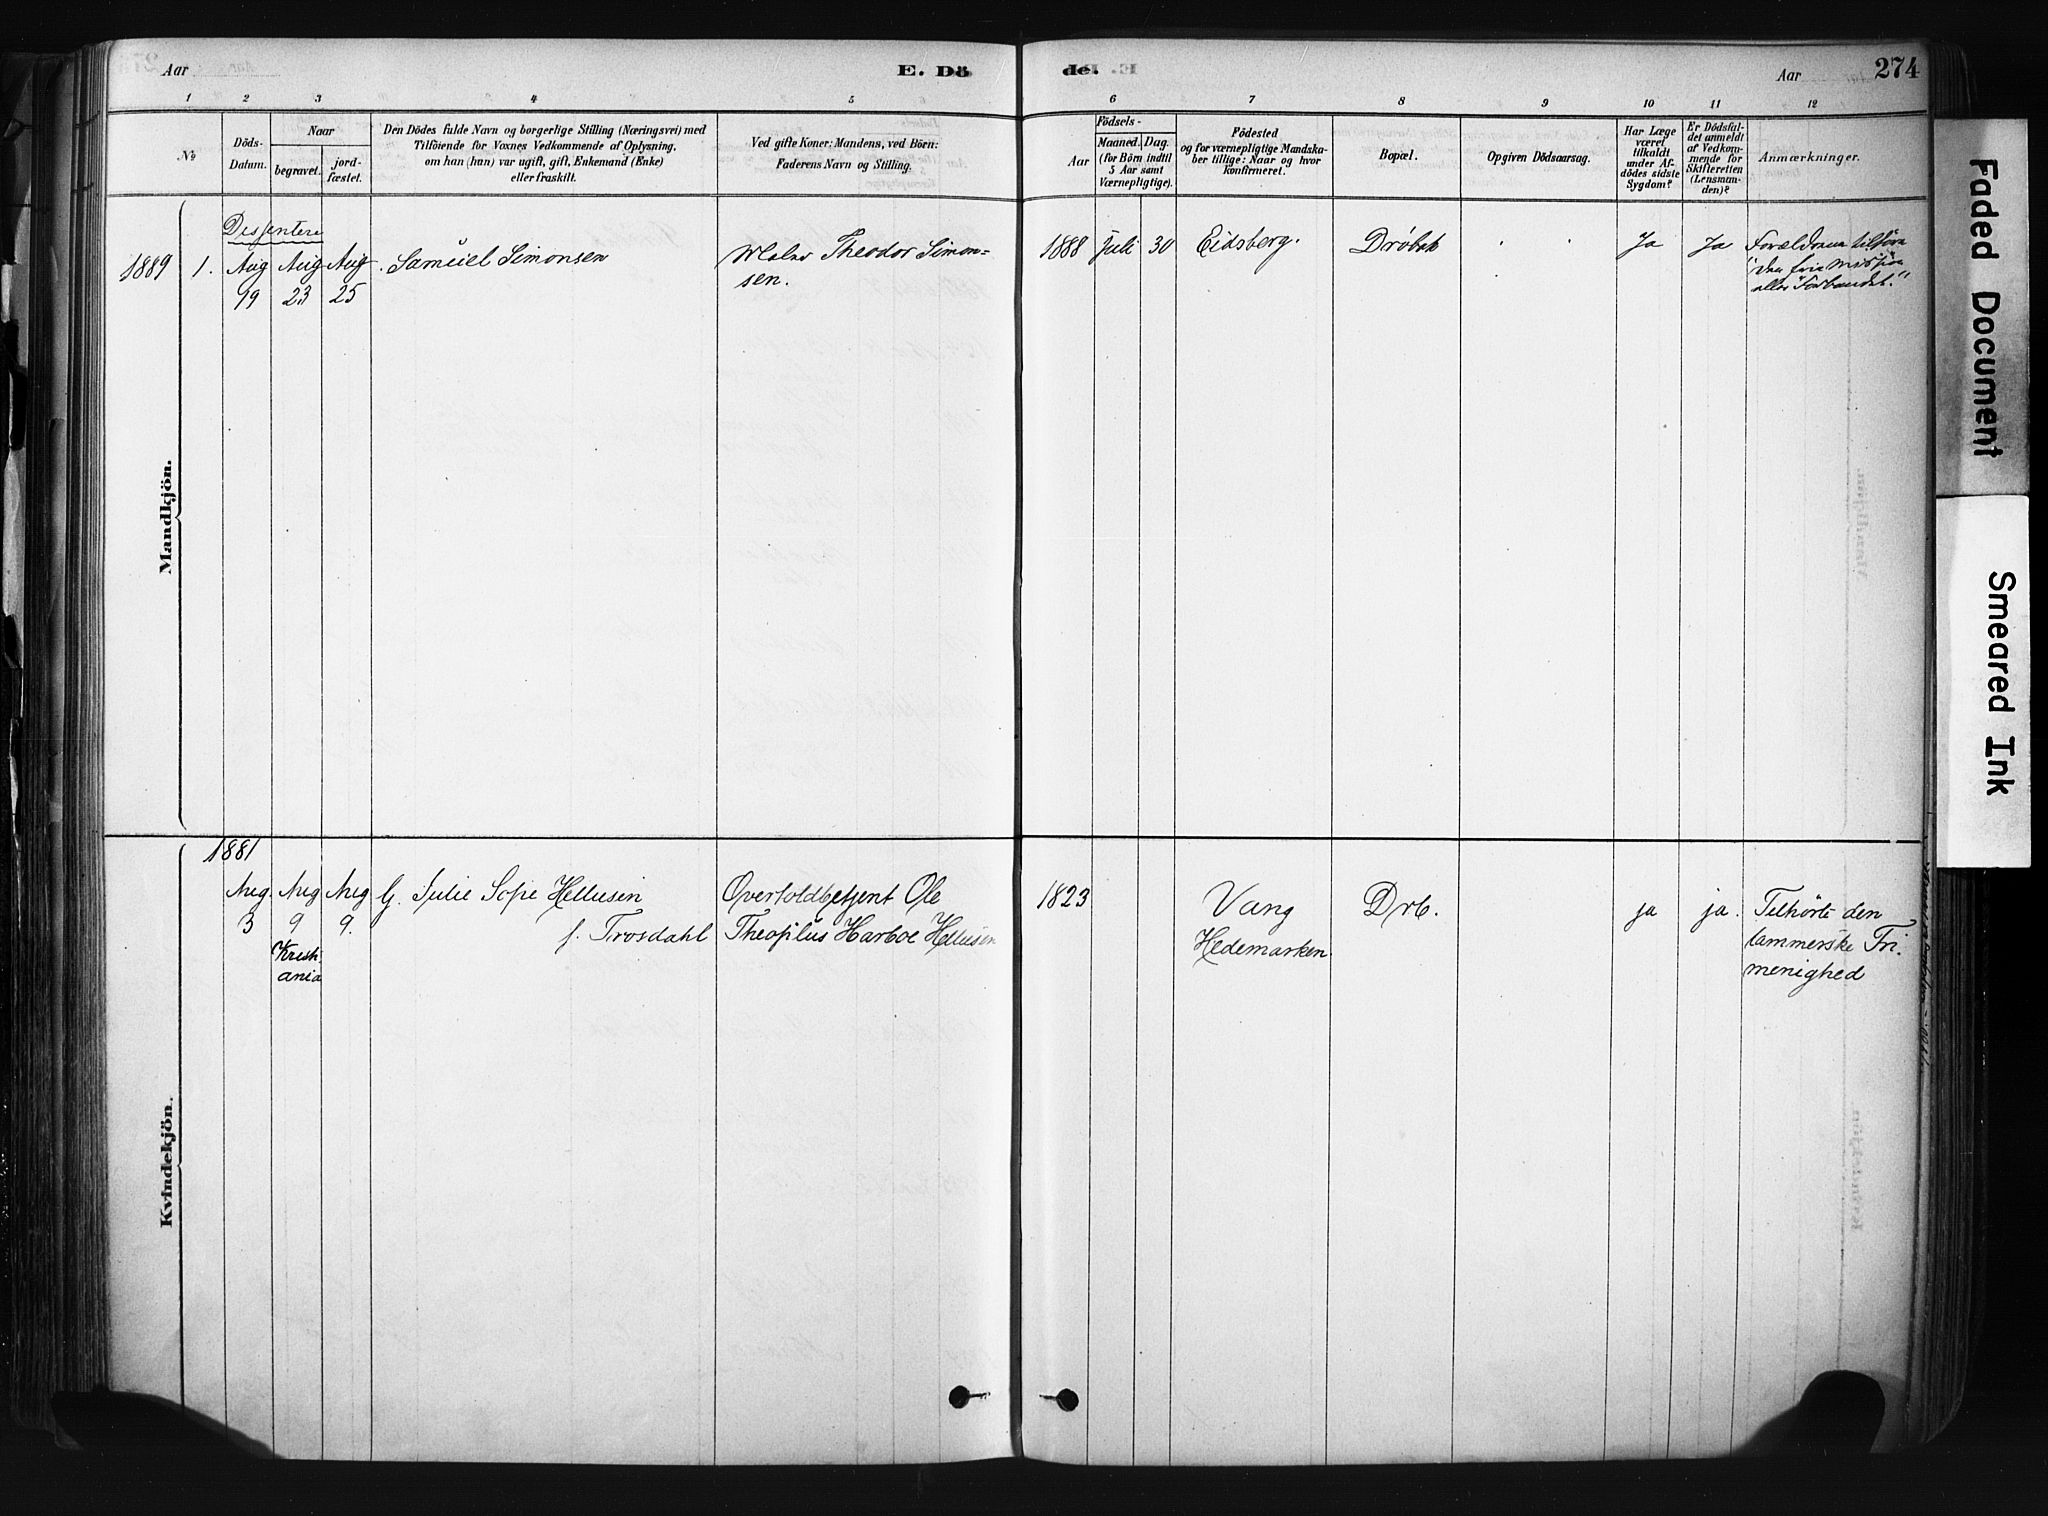 Aar
E. Dö
de.
Aar
274
1 2 3 4 5 6 7 8 9 10 11 12
№
Döds-
Datum.
Naar
begravet.
jord-
fæstet.
Den Dödes fulde Navn og borgerlige Stilling (Næringsvei) med
Tilföiende for Voxnes Vedkommende af Oplysning,
om han (hun) var ugift, gift, Enkemand (Enke)
eller fraskilt.
Ved gifte Koner: Mandens, ved Börn:
Faderens Navn og Stilling.
Födsels-
Aar
Maaned.
Dag.
(for Börn indtil
5 Aar samt
Værnepligtige).
Födested
og for værnepligtige Mandska-
ber tillige: Naar og hvor
konfirmeret.
Bopæl.
Opgiven Dödsaarsag.
Har Læge
været
tilkaldt
under Af-
dödes sidste
Sygdom?
Er Dödsfal-
det anmeldt
af Vedkom-
mende for
Skifteretten
(Lensman-
den)?
Anmærkninger.
Mandkjön.
Dissentere
1889 1. Aug Aug Aug. Samuel Simonsen
19 23 25
Theodor Simon-
sen.
1888 juli 30 Eidsberg. Dröbak
Ja Ja
Forældrene tilhøre
"den frie
eller "Forbundet."
Kvindekjön.
1881
Aug. Aug Aug G. Julie Sofie Hellesen
3 9 9. f. Trosdahl
Krist-
ania
Overtoldbetjent Ole
Theofilus Harboe Hellesen
1823 Vang
Hedemarken.
Drb.
ja ja.
Tilhörte den
lammerske Fri-
menighed
Faded Document
Smeared Ink